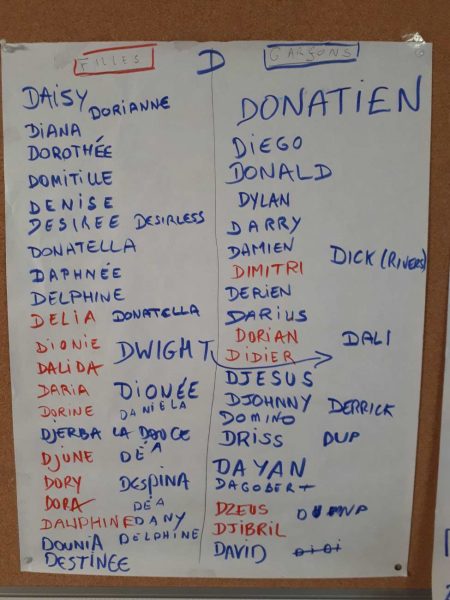 FILLES
D
GARÇONS
DAISY
DORIANNE
DIANA
DOROTHÉE
DOMITILLE
DENISE
DESIREE DESIRLESS
DONATELLA
DAPHNÉE
DELPHINE
DELIA DONATELLA
DIONIE
DWIGHT
DALIDA
DARIA DIONÉE
DORINE DANIELA
DJERBA LA DOUCE
DJUNE DÉA
DORY DESPINA
DORA DÉA
DAUPHINE DANY
DOUNIA DELPHINE
DESTINÉE
DONATIEN
DIEGO
DONALD
DYLAN
DARRY
DAMIEN
DICK (RIVERS)
DIMITRI
DERIEN
DARIUS
DORIAN DALI
DIDIER
DJESUS
DJOHNNY DERRICK
DOMINO
DRISS DUP
DAYAN
DAGOBERT
DZEUS
DJIBRIL
DAVID DIDI